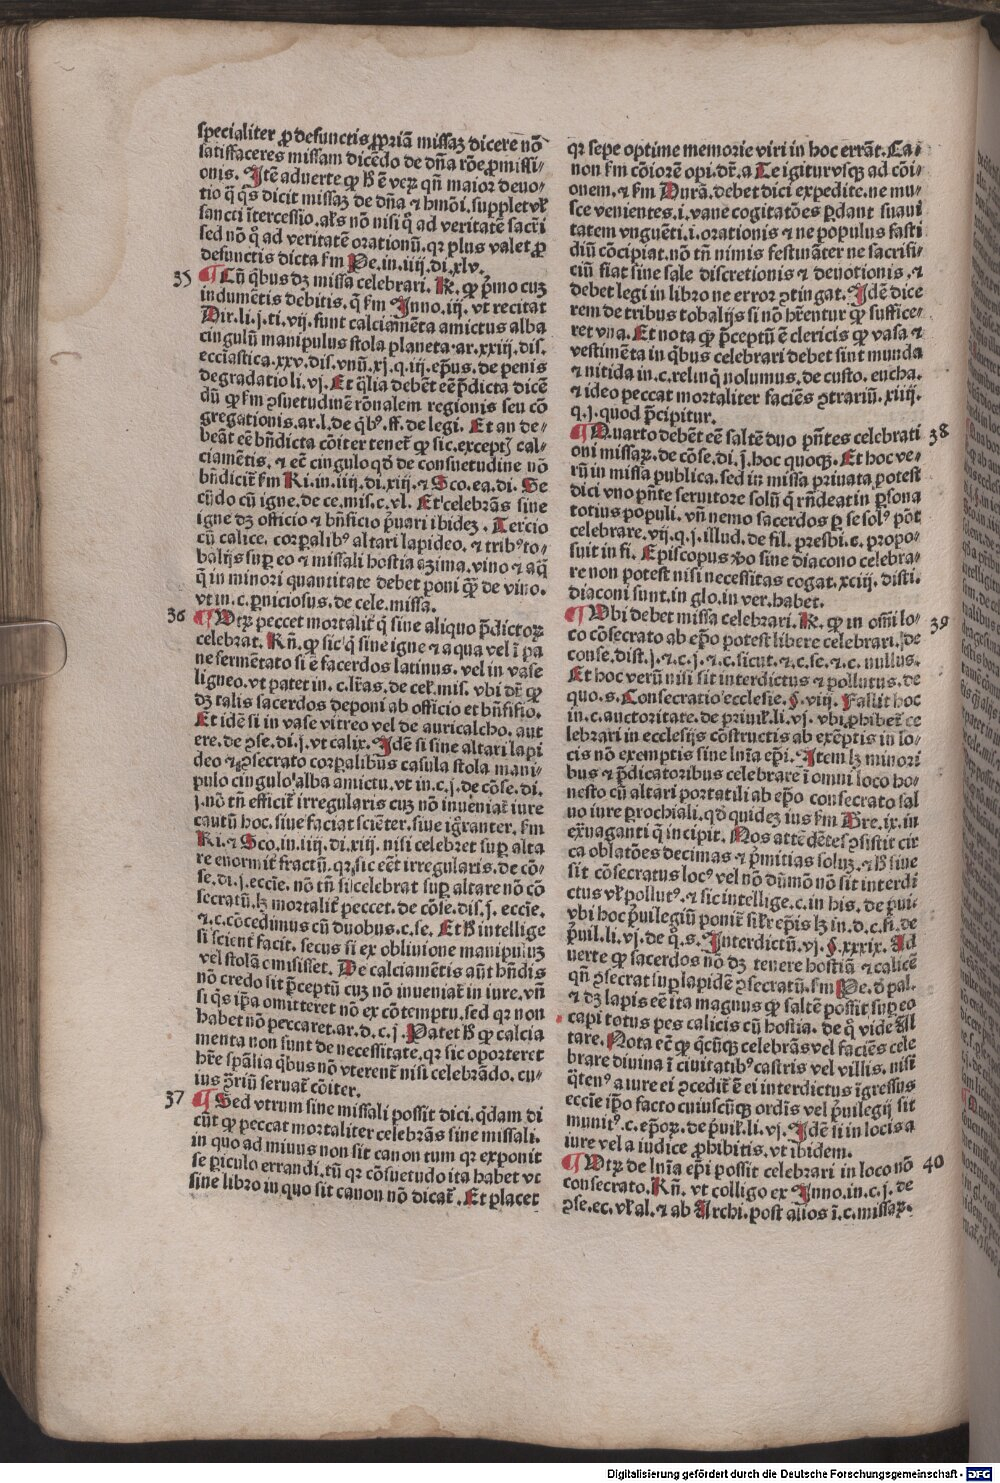 specialiter ꝓ defunctis ꝓpriā missaꝫ dicere nō
satisfaceres missam dicēdo de dn̄a rōe ꝓmissi-
onis. Itē aduerte ꝙ ħ ē verꝫ qn̄ maior deuo-
tio ꝙ̄ q̄s dicit missaꝫ de dn̄a ⁊ hmōi. supplet vł
sancti ītercessio. als nō nisi q̄ ad veritatē sacri
sed nō q̄ ad veritatē orationū. qr plus valet ꝓ
defunctis dicta ẜm Pe. in. iiij. di. xlv.
35 ¶ Cū q̇bus dꝫ missa celebrari. R. ꝙ p̄mo cuꝫ
indumētis debitis. q̄ ẜm Inno. iij. vt recitat
Dir. li. j. ti. vij. sunt calciamēta amictus alba
cingulū manipulus stola planeta. ar. xxiij. dis.
eccīastica. xxv. dis. vnū. xj. q. iij. ep̄us. de penis
degradatio li. vj. Et q̄lia debēt eē p̄dicta dicē
dū ꝙ ẜm ꝯsuetudinē rōnalem regionis seu cō
gregationis. ar. l. de q̇bꝰ. ff. de legi. Et an de-
beāt eē bn̄dicta cōiter tenet̃ ꝙ sic. exceptꝭ cal-
ciamētis. ⁊ etc̄ cingulo qd̓ de consuetudine nō
bn̄dicit̃ ẜm Ri. in. iiij. di. xiij. ⁊ Sco. ea. di. Se
cūdo cū igne. de ce. mis. c. vl. Et celebrās sine
igne dꝫ officio ⁊ bn̄ficio p̄uari ibideꝫ. Tercio
cū calice. corpalibꝰ altari lapideo. ⁊ tribꝰ to-
balijs suꝑ eo ⁊ missali hostia aꝫima. vino ⁊ aq̄
q̄ in minori quantitate debet poni q̄ꝫ de vino.
vt in. c. ꝑniciosus. de cele. missa.
36 ¶ Vtrꝫ peccet mortalit̃ q̄ sine aliquo p̄dictoꝝ
celebrat. Rn̄. ꝙ sic q̄ sine igne ⁊ aqua vel ī pa
ne fermētato si ē sacerdos latinus. vel in vase
ligneo. vt patet in. c. lr̄as. de cel̃. mis. vbi dr̄ ꝙ
dꝫ talis sacerdos deponi ab officio et bn̄fisio.
Et idē si in vase vitreo vel de auricalcho. aut
ere. de ꝯse. di. j. vt calix. Idē si sine altari lapi
deo ⁊ ꝯsecrato corꝑalibus casula stola mani-
pulo cingulo alba amictu. vt in. c. j. de cōse. di.
j. nō tn̄ efficit̃ irregularis cuꝫ nō inueniat̃ iure
cautū hoc. siue faciat sciēter. siue igrāranter. ẜm
Ri. ⁊ Sco. in. iiij. di. xiij. nisi celebret suꝑ alta
re enormit̃ fractū. qr sic eēt irregularis. de cō-
se. di. j. eccīe. nō tn̄ si celebrat suꝑ altare nō cō
secratū. lꝫ mortalit̃ peccet. de cōse. dis. j. eccīe.
⁊. c. cōcedimus cū duobus. c. se. Et ħ intellige
si scient̃ facit. secus si ex obliuione manipuluꝫ
vel stolā omisisset. De calciamētis aūt bn̄dis
nō credo sit p̄ceptū cuꝫ nō inueniat̃ in iure. vn̄
si q̇s ip̄a omitteret nō ex cōtemptu. sed qr non
habet nō peccaret. ar. d. c. j. Patet ħ ꝙ calcia
menta non sunt de necessitate. qr sic oporteret
hr̄e spālia q̇bus nō vterent̃ nisi celebrādo. cu-
ius ꝯriū seruat̃ cōiter.
37 ¶ Sed vtrum sine missali possit dici. q̇dam di
cūt ꝙ peccat mortaliter celebrās sine missali.
in quo ad minus non sit canon tum qr exponit
se ꝑiculo errandi. tū qr cōsuetudo ita habet vt
sine libro in quo sit canon nō dicat̃. Et placet
qr sepe optime memorie viri in hoc errāt. Ca-
non ẜm cōiorē opi. dr̄. a Te igitur vsqꝫ ad cōi-
onem. ⁊ ẜm Durā. debet dici expedite. ne mu-
sce venientes. i. vane cogitatōes ꝑdant suaui
tatem vnguēti. i. orationis ⁊ ne populus fasti
diū cōcipiat. nō tn̄ nimis festināter ne sacrifi-
ciū fiat sine sale discretionis ⁊ deuotionis. ⁊
debet legi in libro ne error ꝯtingat. Idē dice
rem de tribus tobalijs si nō hr̄entur ꝙ suffice-
ret vna. Et nota ꝙ p̄ceptū ē clericis ꝙ vasa ⁊
vestimēta in q̇bus celebrari debet sint munda
⁊ nitida in. c. relinq̇ nolumus. de custo. eucha.
⁊ ideo peccat mortaliter faciēs ꝯtrariū. xliij.
q. j. quod p̄cipitur.
38 ¶ Quarto debēt eē saltē duo pn̄tes celebrati
oni missaꝝ. de cōse. di. j. hoc quoqꝫ. Et hoc ve-
rū in missa publica. sed in missa priuata potest
dici vno pn̄te seruitore solū q̄ rn̄deat in ꝑsona
totius populi. vn̄ nemo sacerdos ꝑ se solꝰ pōt
celebrare. vij. q. j. illud. de fil. presbi. c. propo-
suit in fi. Episcopus ꝟo sine diacono celebra-
re non potest nisi necessitas cogat. xciij. disti.
diaconi sunt. in glo. in ver. habet.
39 ¶ Vbi debet missa celebrari. R. ꝙ in om̄i lo-
co cōsecrato ab ep̄o potest libere celebrari. de
conse. dist. j. ⁊. c. j. ⁊. c. sicut. ⁊. c. se. ⁊. c. nullus.
Et hoc verū nisi sit interdictus ⁊ pollutus. de
quo. s. Consecratio ecclesie. §. viij. Fallit hoc
in. c. auctoritate. de priuil̃. li. vj. vbi ꝓhibet̃ ce
lebrari in ecclesijs cōstructis ab exēptis in lo-
cis nō exemptis sine lnīa ep̄i. Item lꝫ minori
bus ⁊ p̄dicatoribus celebrare ī omni loco ho-
nesto cū altari portatili ab ep̄o consecrato sal
uo iure ꝑrochiali. qd̓ quideꝫ ius ẜm Bre. ix. in
ex̄uaganti q̄ incipit. Nos attēdētes ꝯsistit cir
ca oblatōes decimas ⁊ p̄mitias soluꝫ. ⁊ ħ siue
sit cōsecratus locꝰ vel nō dūmō nō sit interdi
ctus vł pollutꝰ. ⁊ sic intellige. c. in his. de p̄ui-
vbi hoc p̄uilegiū ponit̃ sil̃r ep̄is lꝫ in. d. c. fi. de
p̄uil. li. vj. de q̇. s. Interdictū. vj. §. xxxix. Ad
uerte ꝙ sacerdos nō dꝫ tenere hostiā ⁊ calicē
qn̄ ꝯsecrat suꝑ lapidē ꝯsecratū. ẜm Pe. d̓ pal.
⁊ dꝫ lapis eē ita magnus ꝙ saltē possit suꝑ eo
capi totus pes calicis cū hostia. de q̇ vide Al
tare. Nota etc̄ ꝙ q̇cūqꝫ celebrās vel faciēs cele
brare diuina ī ciuitatibꝰ castris vel villis. nisi
q̄tenꝰ a iure ei ꝯcedit̃ ē ei interdictus īgressus
eccīe ip̄o facto cuiuscūqꝫ ordīs vel p̄uilegij sit
munitꝰ. c. ep̄oꝝ. de p̄uil̃. li. vj. Idē si in locis a
iure vel a iudice ꝓhibitis. vt ibidem.
40 ¶ Vtrꝫ de lnīa ep̄i possit celebrari in loco nō
consecrato. Rn̄. vt colligo ex Inno. in. c. j. de
ꝯse. ec. vł al. ⁊ ab Archi. post alios ī. c. missaꝝ.
Digitalisierung gefördert durch die Deutsche Forschungsgemeinschaft - DFG